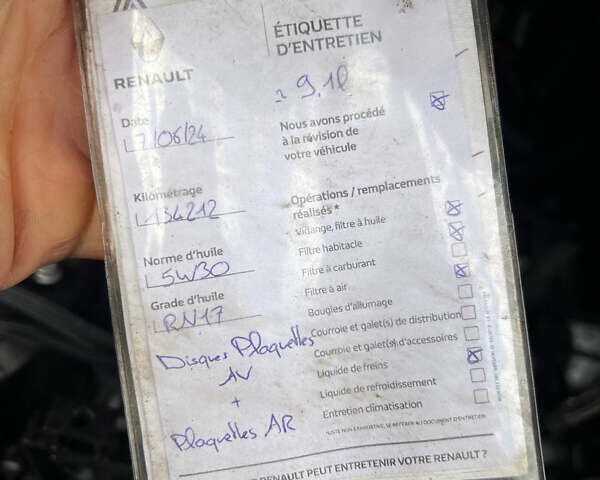 RENAULT
ÉTIQUETTE
D'ENTRETIEN
≈ 9,1l
Date
17/06/24
Nous avons procédé
à la révision de
votre véhicule
Kilométrage
134212
Opérations / remplacements
réalisés *
Vidange, filtre à huile
Filtre habitacle
Filtre à carburant
Filtre à air
Bougies d'allumage
Courroie et galet(s) de distribution
Courroie et galet(s) d'accessoires
Liquide de freins
Liquide de refroidissement
Entretien climatisation
*LISTE NON EXHAUSTIVE, SE RÉFÉRER AU DOCUMENT D'ENTRETIEN
Norme d'huile
5W30
Grade d'huile
RN17
Disques Plaquettes
AV
+
Plaquettes AR
RENAULT PEUT ENTRETENIR VOTRE RENAULT ?